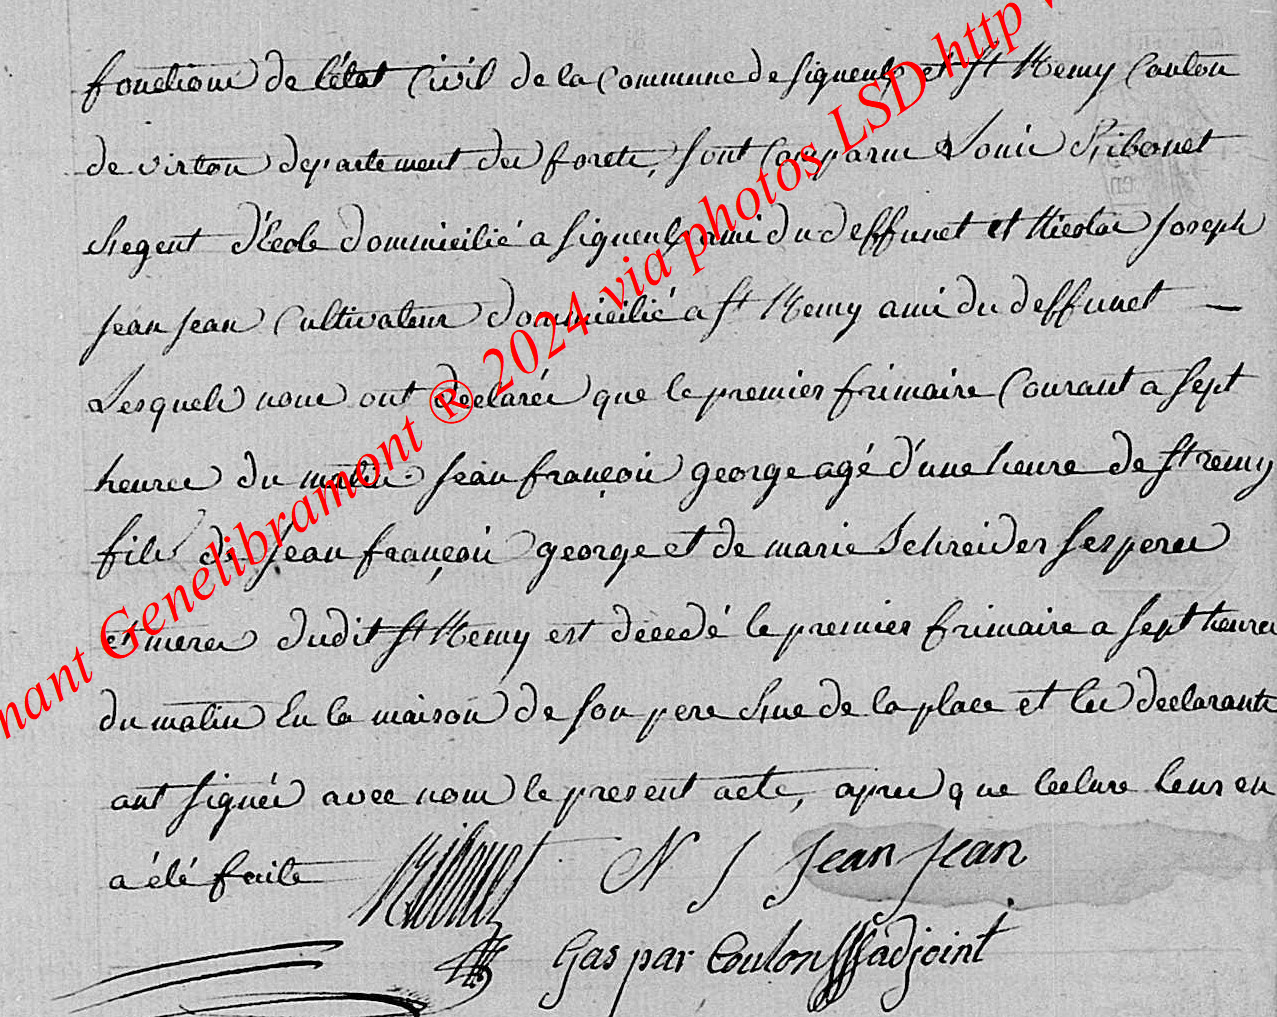 fonctions de l'état Civil de la Commune de Signeulx et St Remy Canton
de virton departement des forets, sont Comparus Louis Ribonet
Regent d'Ecole domicilié a Signeulx ami du deffunct et Nicolas Joseph
Jean Jean Cultivateur domicilié a St Remy ami du deffunct
Lesquels nous ont declarés que le premier frimaire Courant a sept
heures du matin Jean françois george agé d'une heure de St remy
fils de Jean françois george et de marie Schreider ses peres
et meres dudit St Remy est décedé le premier frimaire a sept heures
du matin En la maison de son pere Rue de la place et les declarants
ont signés avec nous le present acte, apres que lecture leur en
a été faite
Ribonet N J Jean Jean
Gaspar Coulon adjoint
nant Genelibramont ® 2024 via photos LSD http